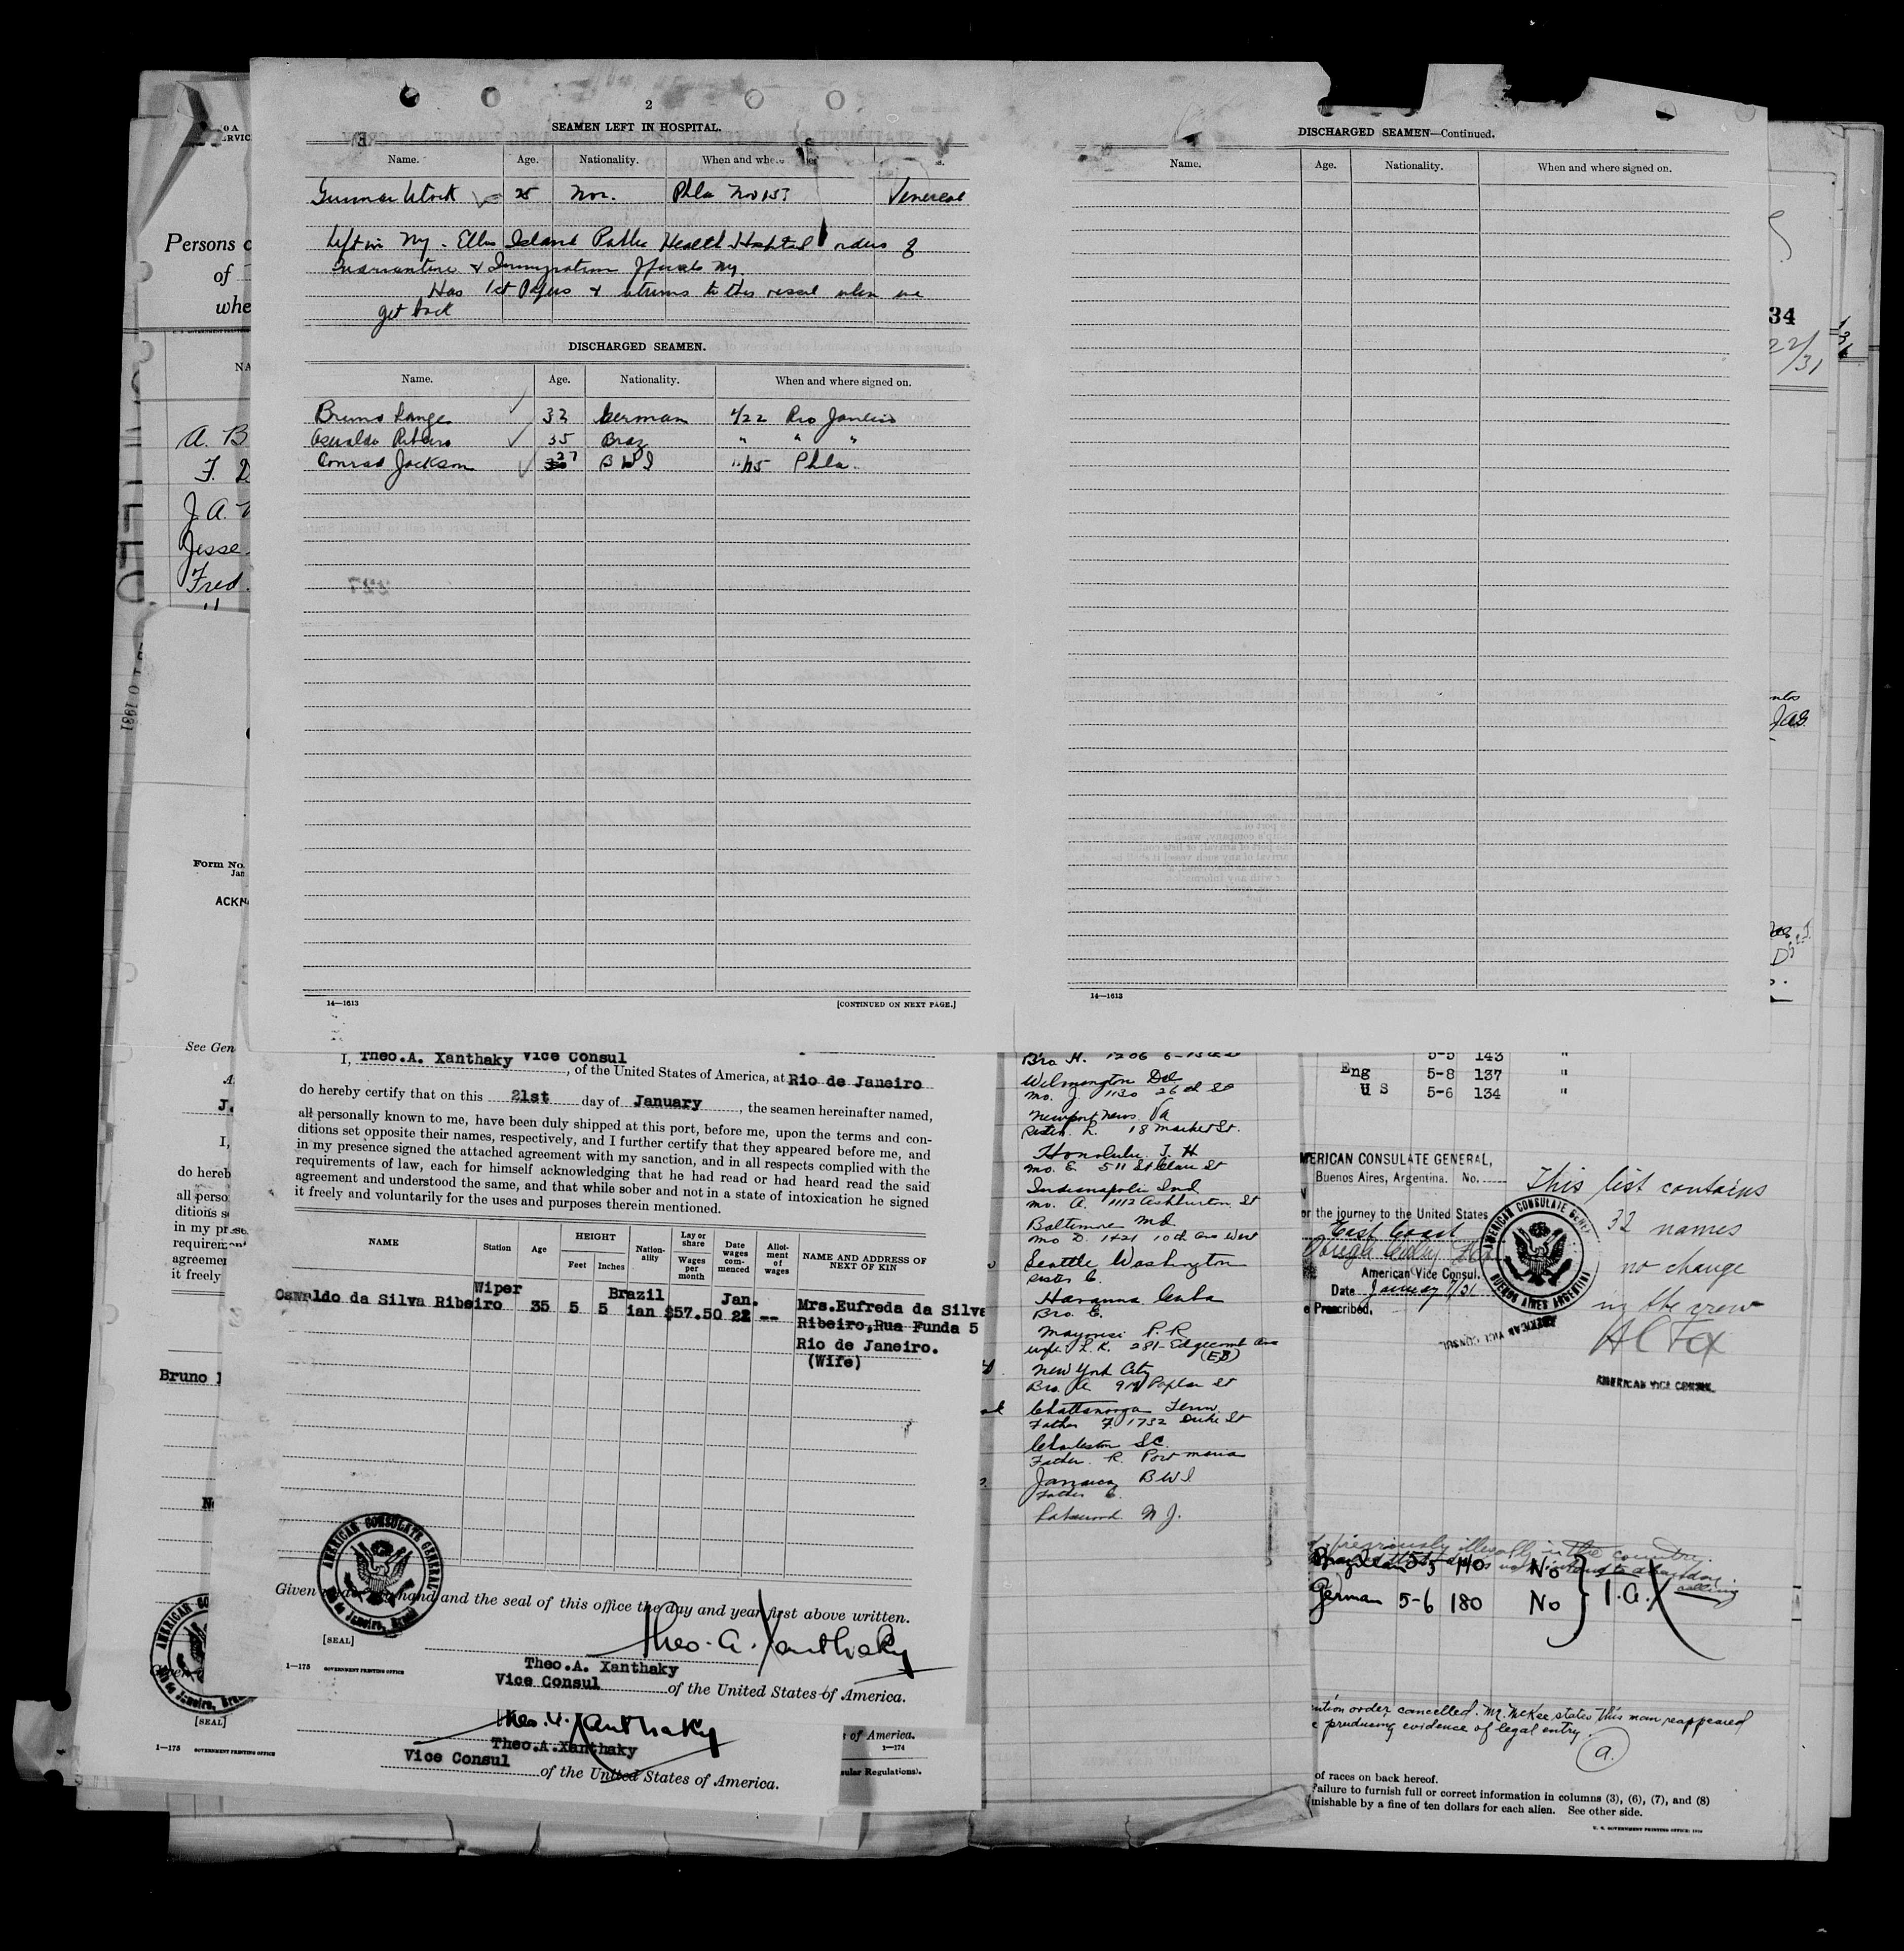 2
SEAMEN LEFT IN HOSPITAL.
Name. Age. Nationality. When and where
25 Nor. Phla Nov 15? Venereal
Left in Ny - Ellis Island Public Health Hospital orders of
Quarantine & Immigration Officials Ny.
Has 1st Papers & returns to this vessel when we
get back
DISCHARGED SEAMEN.
Name. Age. Nationality. When and where signed on.
Bruno Lange 32 German 1/22 Rio Janeiro
Oswaldo Ribeiro 35 Braz " " "
Conrad Jackson 37 B W I 11/15 Phla.
14—1613 [CONTINUED ON NEXT PAGE.]
DISCHARGED SEAMEN—Continued.
Name. Age. Nationality. When and where signed on.
14—1613
Persons
of
whe
NA
A. B
F. D
J. A.
Jesse
Fred.
Form No.
Jan
ACKN
See Gen
I,
do hereb
all perso
ditions s
in my prese
requirem
agreemen
it freely
Bruno
[SEAL]
1—175 GOVERNMENT PRINTING OFFICE
34
22/31
I, Theo.A. Xanthaky Vice Consul
, of the United States of America, at Rio de Janeiro
do hereby certify that on this 21st day of January, the seamen hereinafter named,
all personally known to me, have been duly shipped at this port, before me, upon the terms and con-
ditions set opposite their names, respectively, and I further certify that they appeared before me, and
in my presence signed the attached agreement with my sanction, and in all respects complied with the
requirements of law, each for himself acknowledging that he had read or had heard read the said
agreement and understood the same, and that while sober and not in a state of intoxication he signed
it freely and voluntarily for the uses and purposes therein mentioned.
NAME Station Age HEIGHT Feet Inches Nation-ality Lay or share Wages per month Date wages com-menced Allot-ment of wages NAME AND ADDRESS OF NEXT OF KIN
Wiper Brazil Jan.
Oswaldo da Silva Ribeiro 35 5 5 ian $57.50 22 -- Mrs.Eufreda da Silva
Ribeiro,Rua Funda 5
Rio de Janeiro.
(Wife)
AMERICAN CONSULATE GENERAL
Rio de Janeiro, Brazil
Given under my hand and the seal of this office the day and year first above written.
Theo. A. Xanthaky
[SEAL]
Theo.A. Xanthaky
1—175 GOVERNMENT PRINTING OFFICE
Vice Consul of the United States of America.
Theo. A. Xanthaky
Theo.A.Xanthaky
Vice Consul
of the United States of America.
of America.
1—174
sular Regulations).
Wilmington Del
Mo. J. 1130 26th St
Newport News Va
Sister. L. 18 Market St.
Honolulu T. H
Mo. E. 511 St Clair St
Indianapolis Ind
Mo. A. 1112 Ashburton St
Baltimore Md
Mo D. 1421 10th Ave West
Seattle Washington
Sister C.
Havanna Cuba
Bro. E.
P. R
wife L. K. 281 Edgecomb Ave
New York City
Bro. A Poplar St
Chattanooga Tenn.
Father F 1732 Duke St
Charleston SC.
Father. R.
Jamaica BWI
Father C.
Lakewood N J.
5-5 143 "
Eng 5-8 137 "
U S 5-6 134 "
MERICAN CONSULATE GENERAL,
Buenos Aires, Argentina. No.
or the journey to the United States
East Coast
American Vice Consul.
Date January 7/31
e Prescribed.
AMERICAN CONSULATE GENERAL
BUENOS AIRES ARGENTINA
AMERICAN VICE CONSUL
This list contains
32 names
no change
in the crew
A C Fox
AMERICAN VICE CONSUL
previously illegally in the country.
Brazilian 5-5 140 No
German 5-6 180 No
ention order cancelled. Mr. McKee states this man reappeared
producing evidence of legal entry
a.
of races on back hereof.
Failure to furnish full or correct information in columns (3), (6), (7), and (8)
unishable by a fine of ten dollars for each alien. See other side.
U. S. GOVERNMENT PRINTING OFFICE: